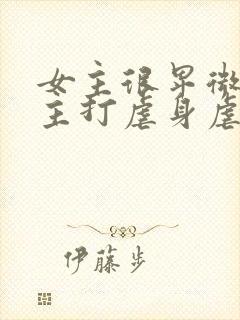 女主很早微
主打虐身虐
伊藤步